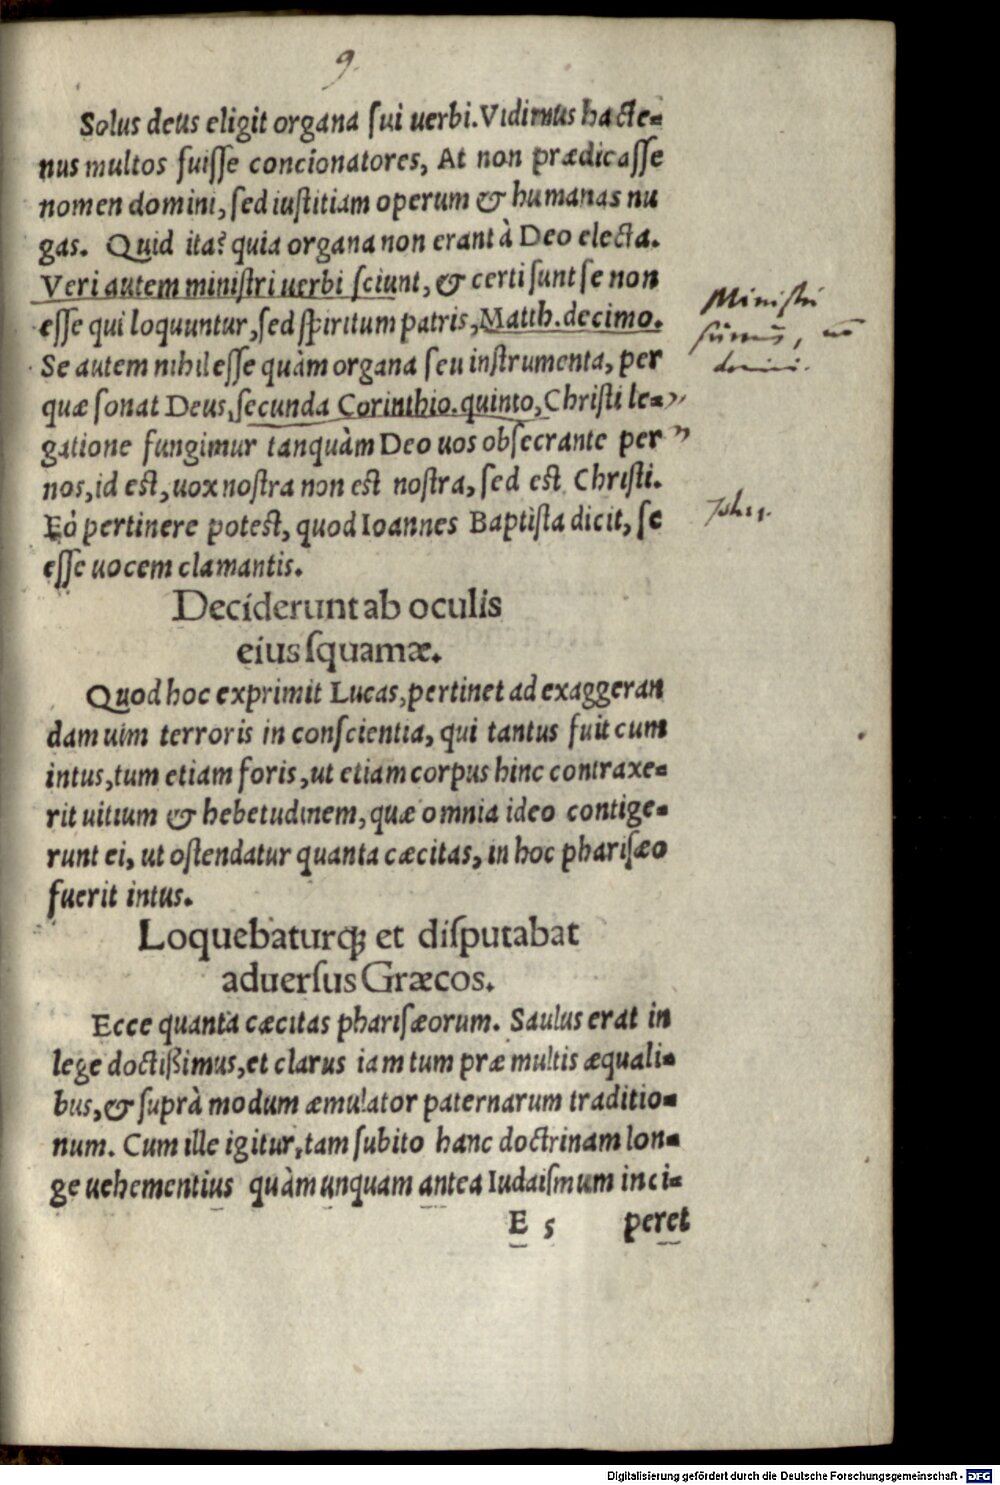 9.
Solus deus eligit organa sui uerbi. Vidimus hacte-
nus multos fuisse concionatores, At non prædicasse
nomen domini, sed iustitiam operum & humanas nu
gas. Quid ita? quia organa non erant à Deo electa.
Veri autem ministri uerbi sciunt, & certi sunt se non
esse qui loquuntur, sed spiritum patris, Matth. decimo.
Se autem nihil esse quàm organa seu instrumenta, per
quæ sonat Deus, secunda Corinthio. quinto, Christi le-
gatione fungimur tanquàm Deo uos obsecrante per
nos, id est, uox nostra non est nostra, sed est Christi.
Eò pertinere potest, quod Ioannes Baptista dicit, se
esse uocem clamantis.
Ministri
sumus,
domini.
Deciderunt ab oculis
eius squamæ.
Quod hoc exprimit Lucas, pertinet ad exaggeran
dam uim terroris in conscientia, qui tantus fuit cum
intus, tum etiam foris, ut etiam corpus hinc contraxe-
rit uitium & hebetudinem, quæ omnia ideo contige-
runt ei, ut ostendatur quanta cæcitas, in hoc pharisæo
fuerit intus.
Loquebaturq; et disputabat
aduersus Græcos.
Ecce quanta cæcitas pharisæorum. Saulus erat in
lege doctißimus, et clarus iam tum præ multis æquali-
bus, & suprà modum æmulator paternarum traditio-
num. Cum ille igitur, tam subito hanc doctrinam lon-
ge uehementius quàm unquam antea Iudaismum inci-
E 5 peret
Digitalisierung gefördert durch die Deutsche Forschungsgemeinschaft - DFG